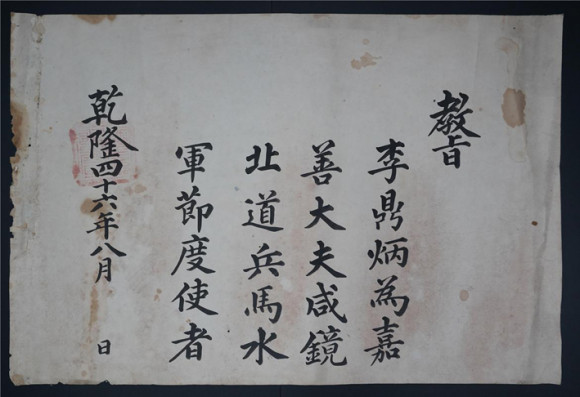 教旨
李鼎炳為嘉
善大夫咸鏡
北道兵馬水
軍節度使者
乾隆四十六年八月 日